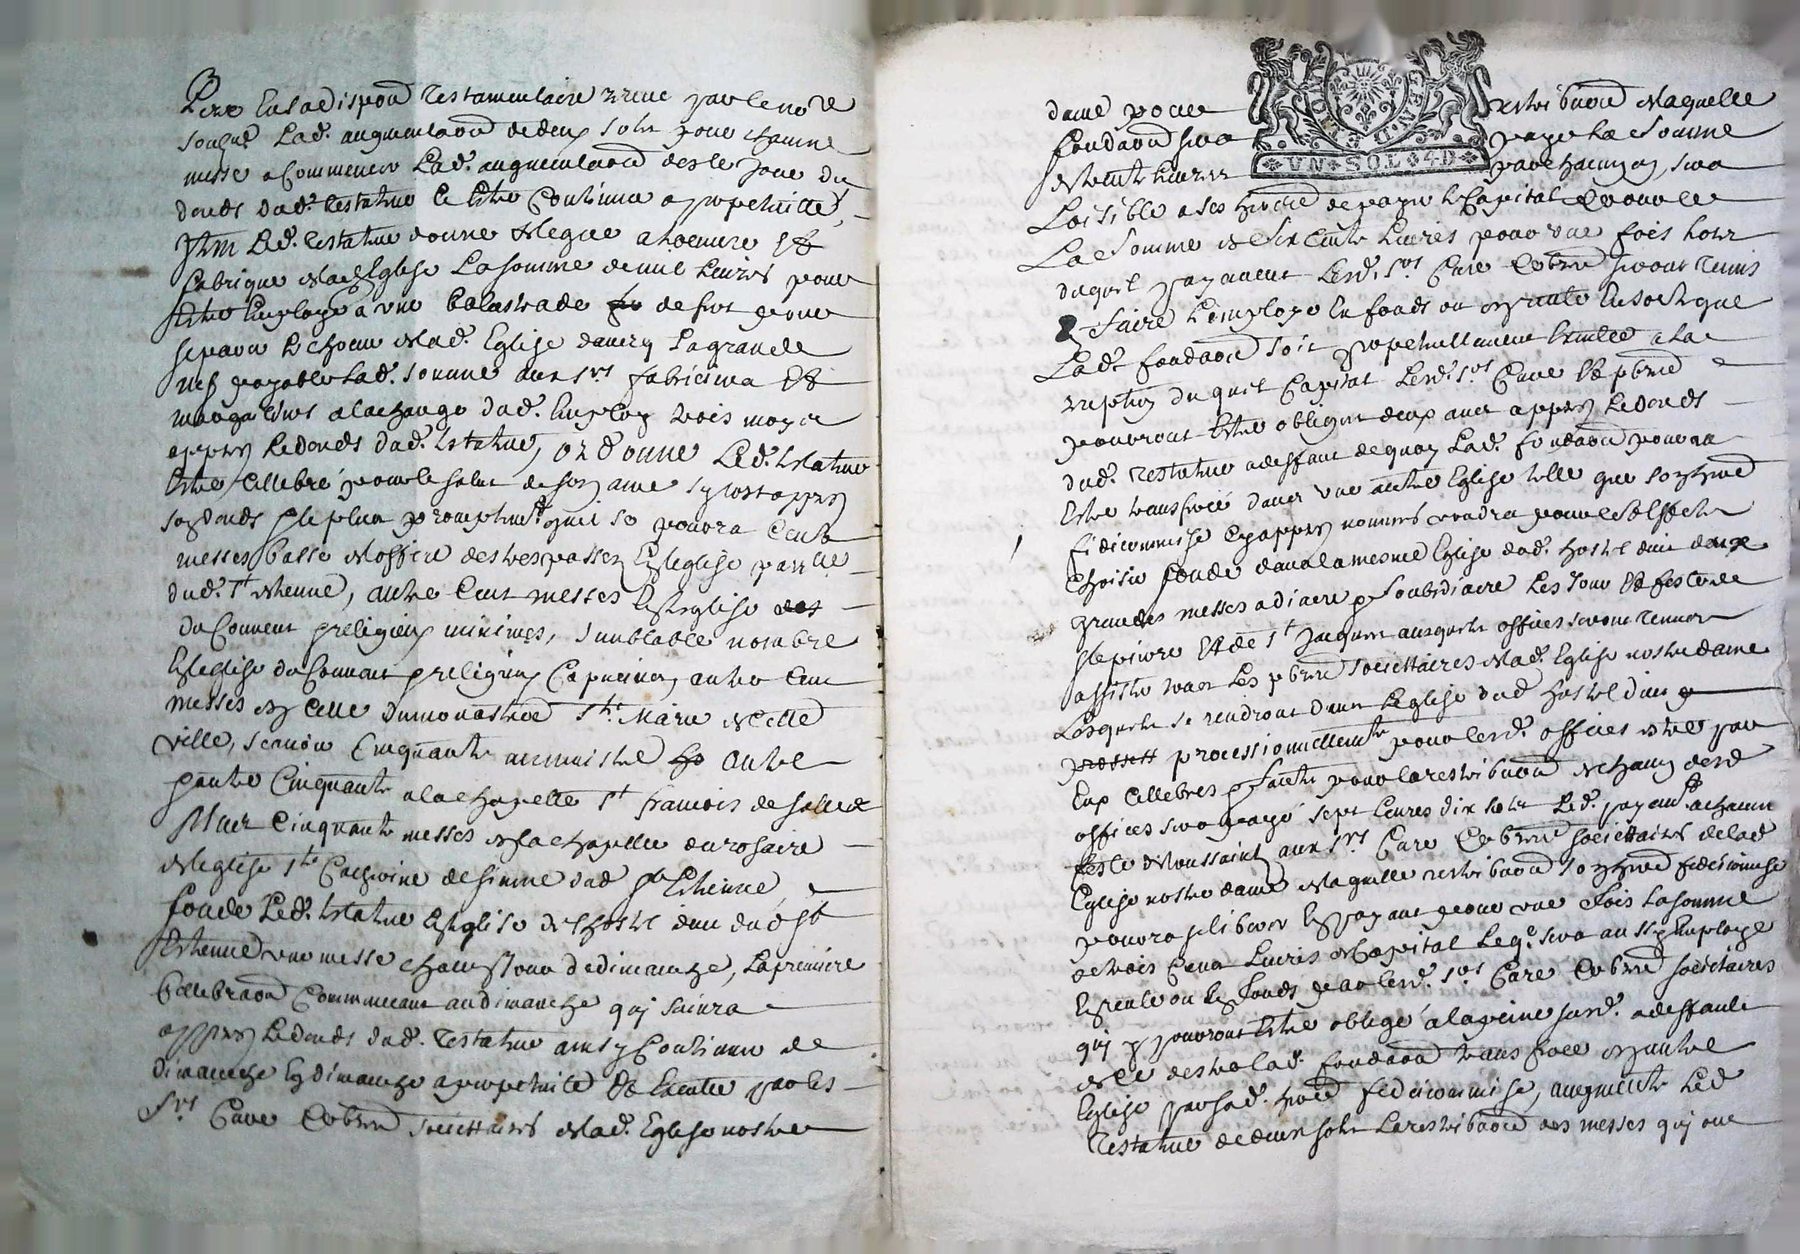 Pere en sa dispon testamentaire receue par le no.re
soubzné lad. augmentaon de deux solz pour chacune
messe a commencer lad. augmentaon des le jour du
deceds dud. testateur et estre continuee a perpetuitté,
Item led. testateur donne et legue a l'oeuvre et
fabrique de lad. Eglise la somme de mil livres pour
estre employé a une balustrade de fert pour
separer le choeur de lad. Eglise d'avecq la grande
nef payable lad. somme aux srs fabriciens et
marguilliers a la charge dud. employ trois moys
appres le deceds dud. testateur, ordonne led. testateur
estre cellebré pour le salut de son ame sytost appres
son deceds et le plus promptemt. que se pourra cent
messes basse et office des trespasses en l'eglise par.lle
dud. st Estienne, autre cent messes en l'eglise
du Couvent des religieux minimes, semblable nombre
en l'eglise du Couvent des religieux Capucins, autre cent
messes en celle du monastere ste Marie de cette
ville, scavoir cinquante au maistre autel
et autre cinquante a la chapelle st francois de Salles
Plus cinquante messes en la chapelle du rosaire
de l'eglise ste Catherine de Sienne dud. st Estienne,
fonde led. testateur en l'Eglise de l'hostel dieu dud. st
Estienne une messe chacun jour de dimanche, la premiere
cellebraon commenceant au dimanche quy suivra
appres le deceds dud. testateur ainsy continuer de
dimanche en dimanche a perpetuité et ditte par les
srs Curé et pbres societtaires de lad. Eglise nostre
dame pour restribuon de laquelle
fondaon sera payé la somme
de trente livres par chacun an, sera
VN·SOL·4D
Loisible a ses heritie. de payer le Capital pour
La somme de six cents livres pour une fois lors
duquel payement lesd. srs Curé et pbres seront tenus
faire l'employ en fonds ou en rente en sorte que
Lad. fondaon soit perpetuellement a la
reption duquel Capital lesd. srs Curé et pbres
pourront estre obliges deux ans appres le deceds
dud. testateur a deffaut de quoy lad. fondaon pourra
Estre transferee dans une autre Eglise telle que son hered
fidicommise cy appres nommé voudra pour cest effect
choisir fonde dans la mesme Eglise dud. hostel dieu deux
grandes messes a diacre et soubdiacre les jour et feste de
st pierre et de st Jacques ausquels offices seront tenus
assister tous les pbres societtaires de lad. Eglise nostre dame
Lesquels se rendront dans l'eglise dud. hostel dieu
processionnellemt. pour lesd. offices estre par
Eux cellebres et faits pour la restribuon de chacun desd.
offices sera payé sept livres dix solz led. payemt. a chacune
feste de Toussaint aux srs Curé et pbres societtaires de lad.
Eglise nostre dame de laquelle restribuon son hered. fidicommise
pourra se liberer en payant pour une fois la somme
de trois cens livres de Capital leql. sera aussy employé
En rente ou en fonds par lesd. srs Curé et pbres societtaires
quy y pourront estre obligé a la peine susd. a deffaut
de ce destre lad. fondaon transferee en autre
Eglise par sad. hered. fidicommise, augmente led.
Testateur de deux solz la restribuon des messes quy ont